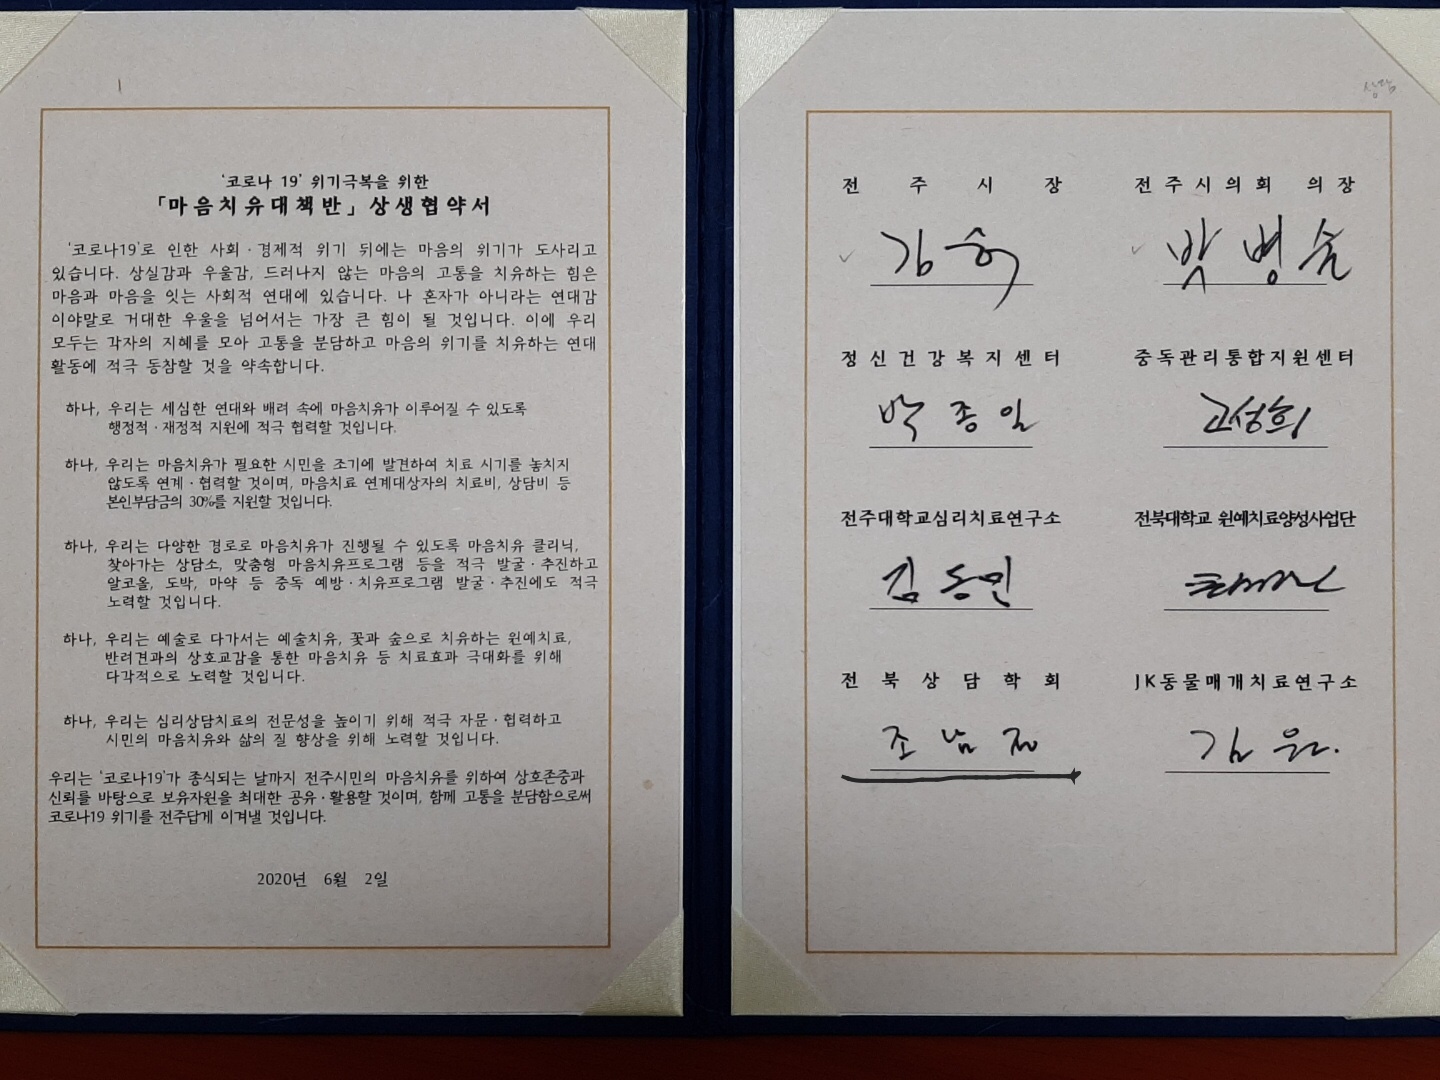 '코로나 19' 위기극복을 위한
「마음치유대책반」상생협약서
'코로나19'로 인한 사회·경제적 위기 뒤에는 마음의 위기가 도사리고
있습니다. 상실감과 우울감, 드러나지 않는 마음의 고통을 치유하는 힘은
마음과 마음을 잇는 사회적 연대에 있습니다. 나 혼자가 아니라는 연대감
이야말로 거대한 우울을 넘어서는 가장 큰 힘이 될 것입니다. 이에 우리
모두는 각자의 지혜를 모아 고통을 분담하고 마음의 위기를 치유하는 연대
활동에 적극 동참할 것을 약속합니다.
하나, 우리는 세심한 연대와 배려 속에 마음치유가 이루어질 수 있도록
행정적·재정적 지원에 적극 협력할 것입니다.
하나, 우리는 마음치유가 필요한 시민을 조기에 발견하여 치료 시기를 놓치지
않도록 연계·협력할 것이며, 마음치료 연계대상자의 치료비, 상담비 등
본인부담금의 30%를 지원할 것입니다.
하나, 우리는 다양한 경로로 마음치유가 진행될 수 있도록 마음치유 클리닉,
찾아가는 상담소, 맞춤형 마음치유프로그램 등을 적극 발굴·추진하고
알코올, 도박, 마약 등 중독 예방·치유프로그램 발굴·추진에도 적극
노력할 것입니다.
하나, 우리는 예술로 다가서는 예술치유, 꽃과 숲으로 치유하는 원예치료,
반려견과의 상호교감을 통한 마음치유 등 치료효과 극대화를 위해
다각적으로 노력할 것입니다.
하나, 우리는 심리상담치료의 전문성을 높이기 위해 적극 자문·협력하고
시민의 마음치유와 삶의 질 향상을 위해 노력할 것입니다.
우리는 '코로나19'가 종식되는 날까지 전주시민의 마음치유를 위하여 상호존중과
신뢰를 바탕으로 보유자원을 최대한 공유·활용할 것이며, 함께 고통을 분담함으로써
코로나19 위기를 전주답게 이겨낼 것입니다.
2020년 6월 2일
전 주 시 장
전주시의회 의장
박병술
정신건강복지센터
중독관리통합지원센터
박종일
고성희
전주대학교심리치료연구소
전북대학교 원예치료양성사업단
김동민
전 북 상 담 학 회
JK동물매개치료연구소
조남정
김원